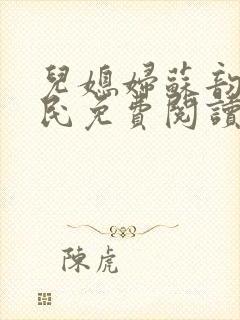 兒媳婦蘇韵
民免費閱讀
陳虎